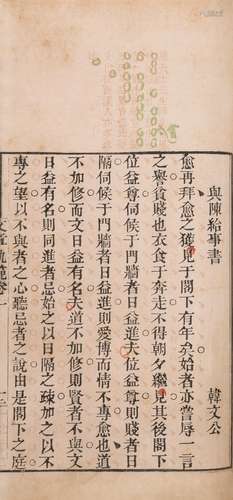 與陳給事書 韓文公
愈再拜愈之獲見于閤下有年矣始者亦嘗辱一言
之譽貧賤也衣食于奔走不得朝夕繼見其後閤下
位益尊伺候于門牆者日益進夫位益尊則賤者日
隔伺候于門牆者日益進則愛博而情不專愈也道
不加修而文日益有名夫道不加修則賢者不與文
日益有名則同進者忌始之以日隔之疎加之以不
專之望以不與者之心聽忌者之說由是閤下之庭